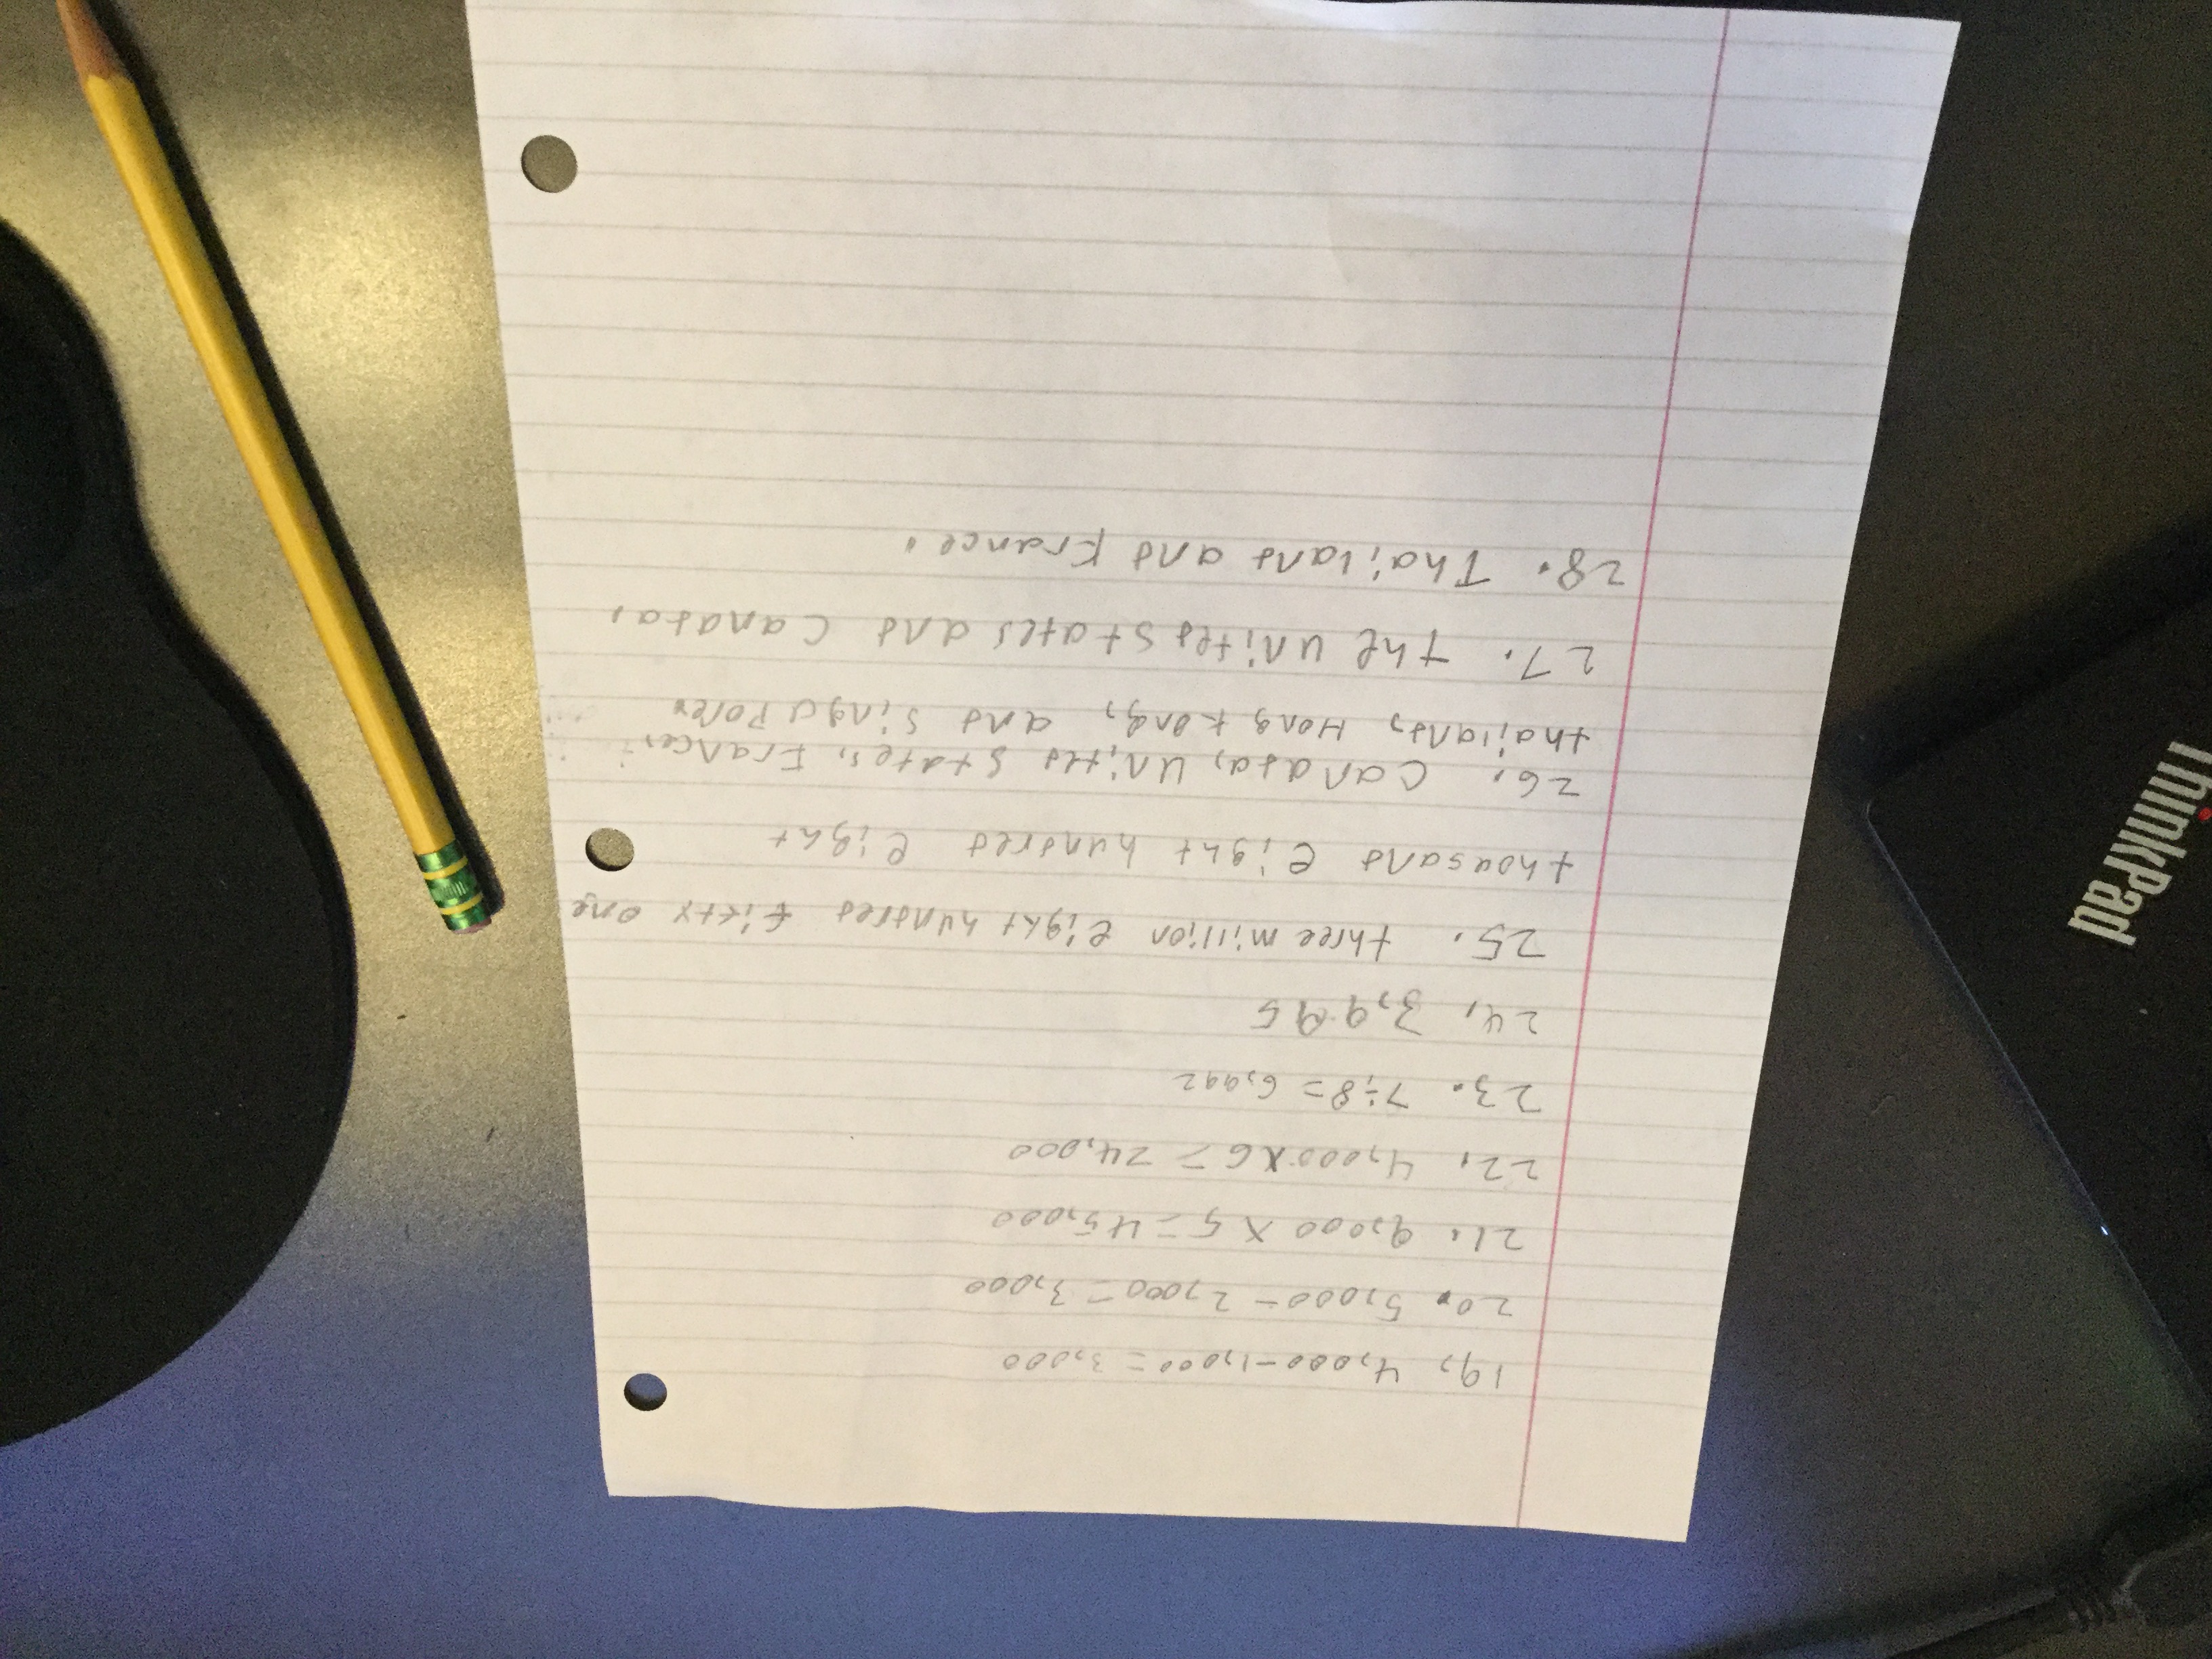 19, 4,000-1,000=3,000
20. 5,000-2,000=3,000
21. 9,000 X 5=45,000
22, 4,000X6= 24,000
23. 7÷8= 6,992
24, 3,995
25. three million eight hundred fifty one
thousand eight hundred eight
26, Canada, United States, France,
thailand, Hong Kong, and Singapore.
27. the united states and Canada,
28. Thailand and France.
ThinkPad